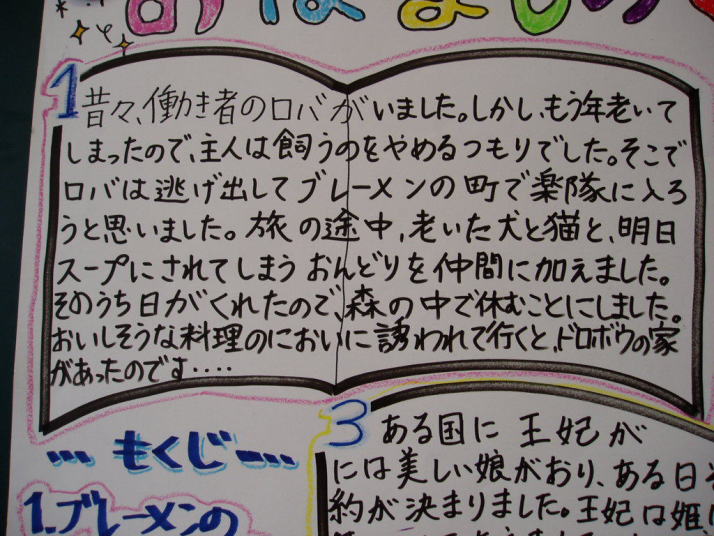 1
昔々、働き者のロバがいました。しかし、もう年老いて
しまったので、主人は飼うのをやめるつもりでした。そこで
ロバは逃げ出してブレーメンの町で楽隊に入ろ
うと思いました。旅の途中、老いた犬と猫と、明日
スープにされてしまうおんどりを仲間に加えました。
そのうち日がくれたので、森の中で休むことにしました。
おいしそうな料理のにおいに誘われて行くと、ドロボウの家
があったのです・・・・
もくじ
1.ブレーメンの
3
ある国に王妃が
には美しい娘がおり、ある日
約が決まりました。王妃は姫